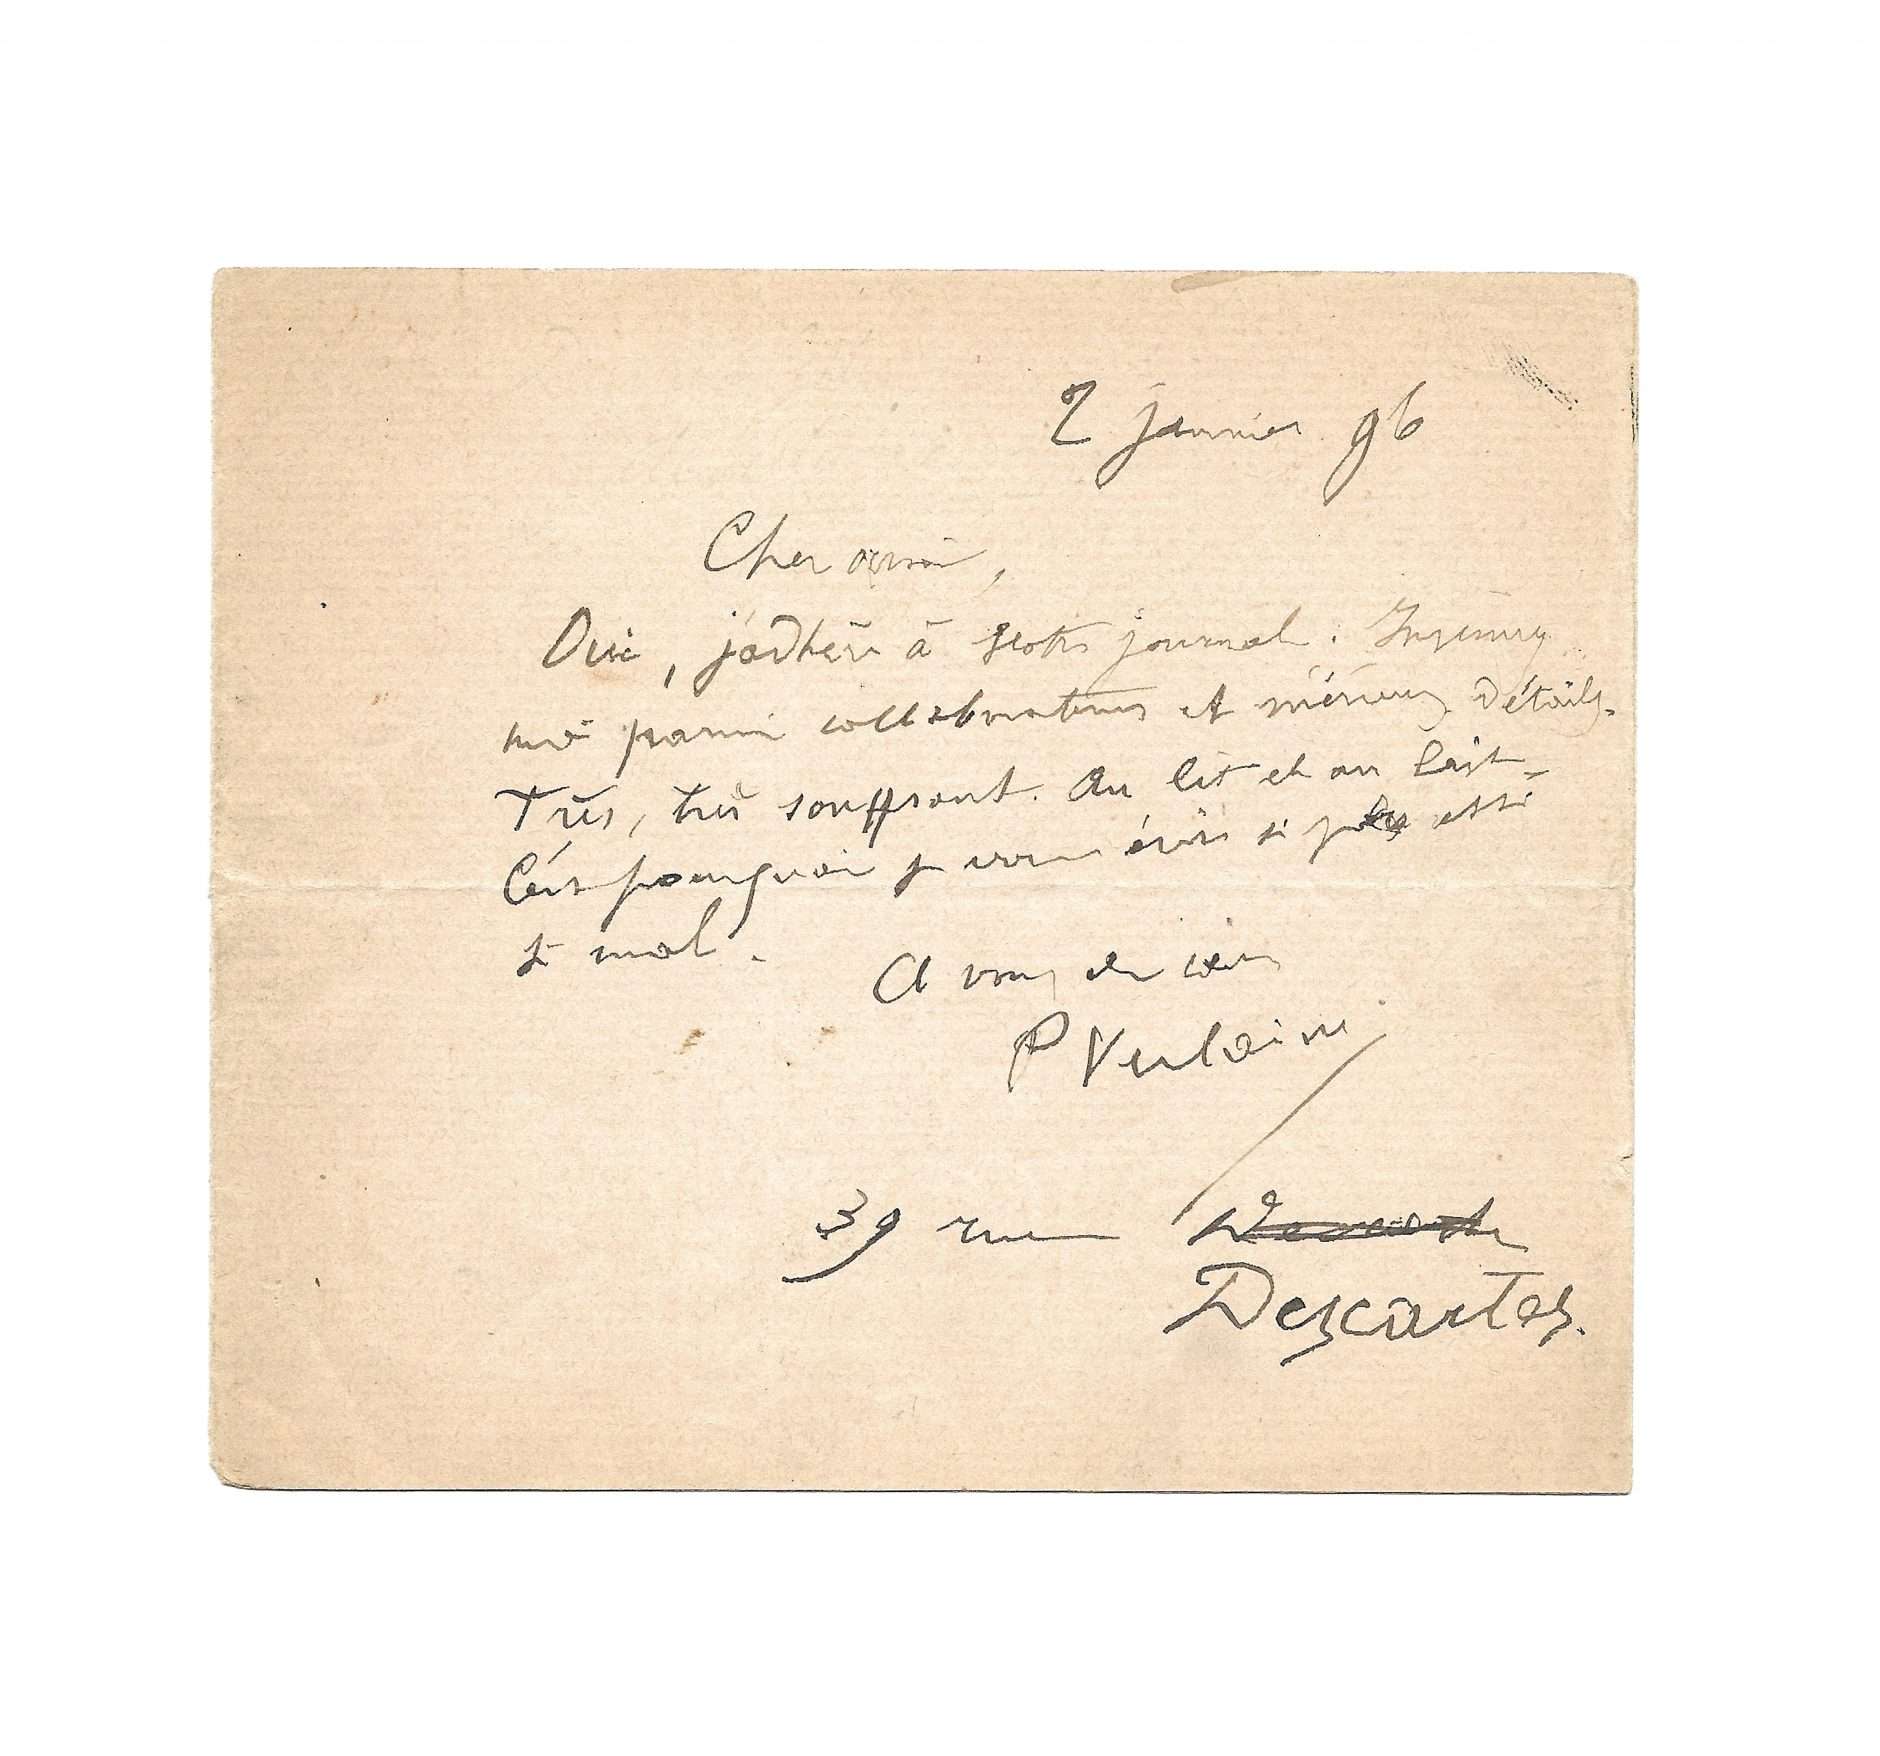 2 janvier 96
Cher ami,
Oui, j'adhère à votre journal. Inscrivez
moi parmi collaborateurs et détails.
Très, très souffrant. Au lit et au lait.
C'est pourquoi je vous écris si peu et si
si mal.
A vous de cœur
P Verlaine
39 rue Descartes
Descartes.